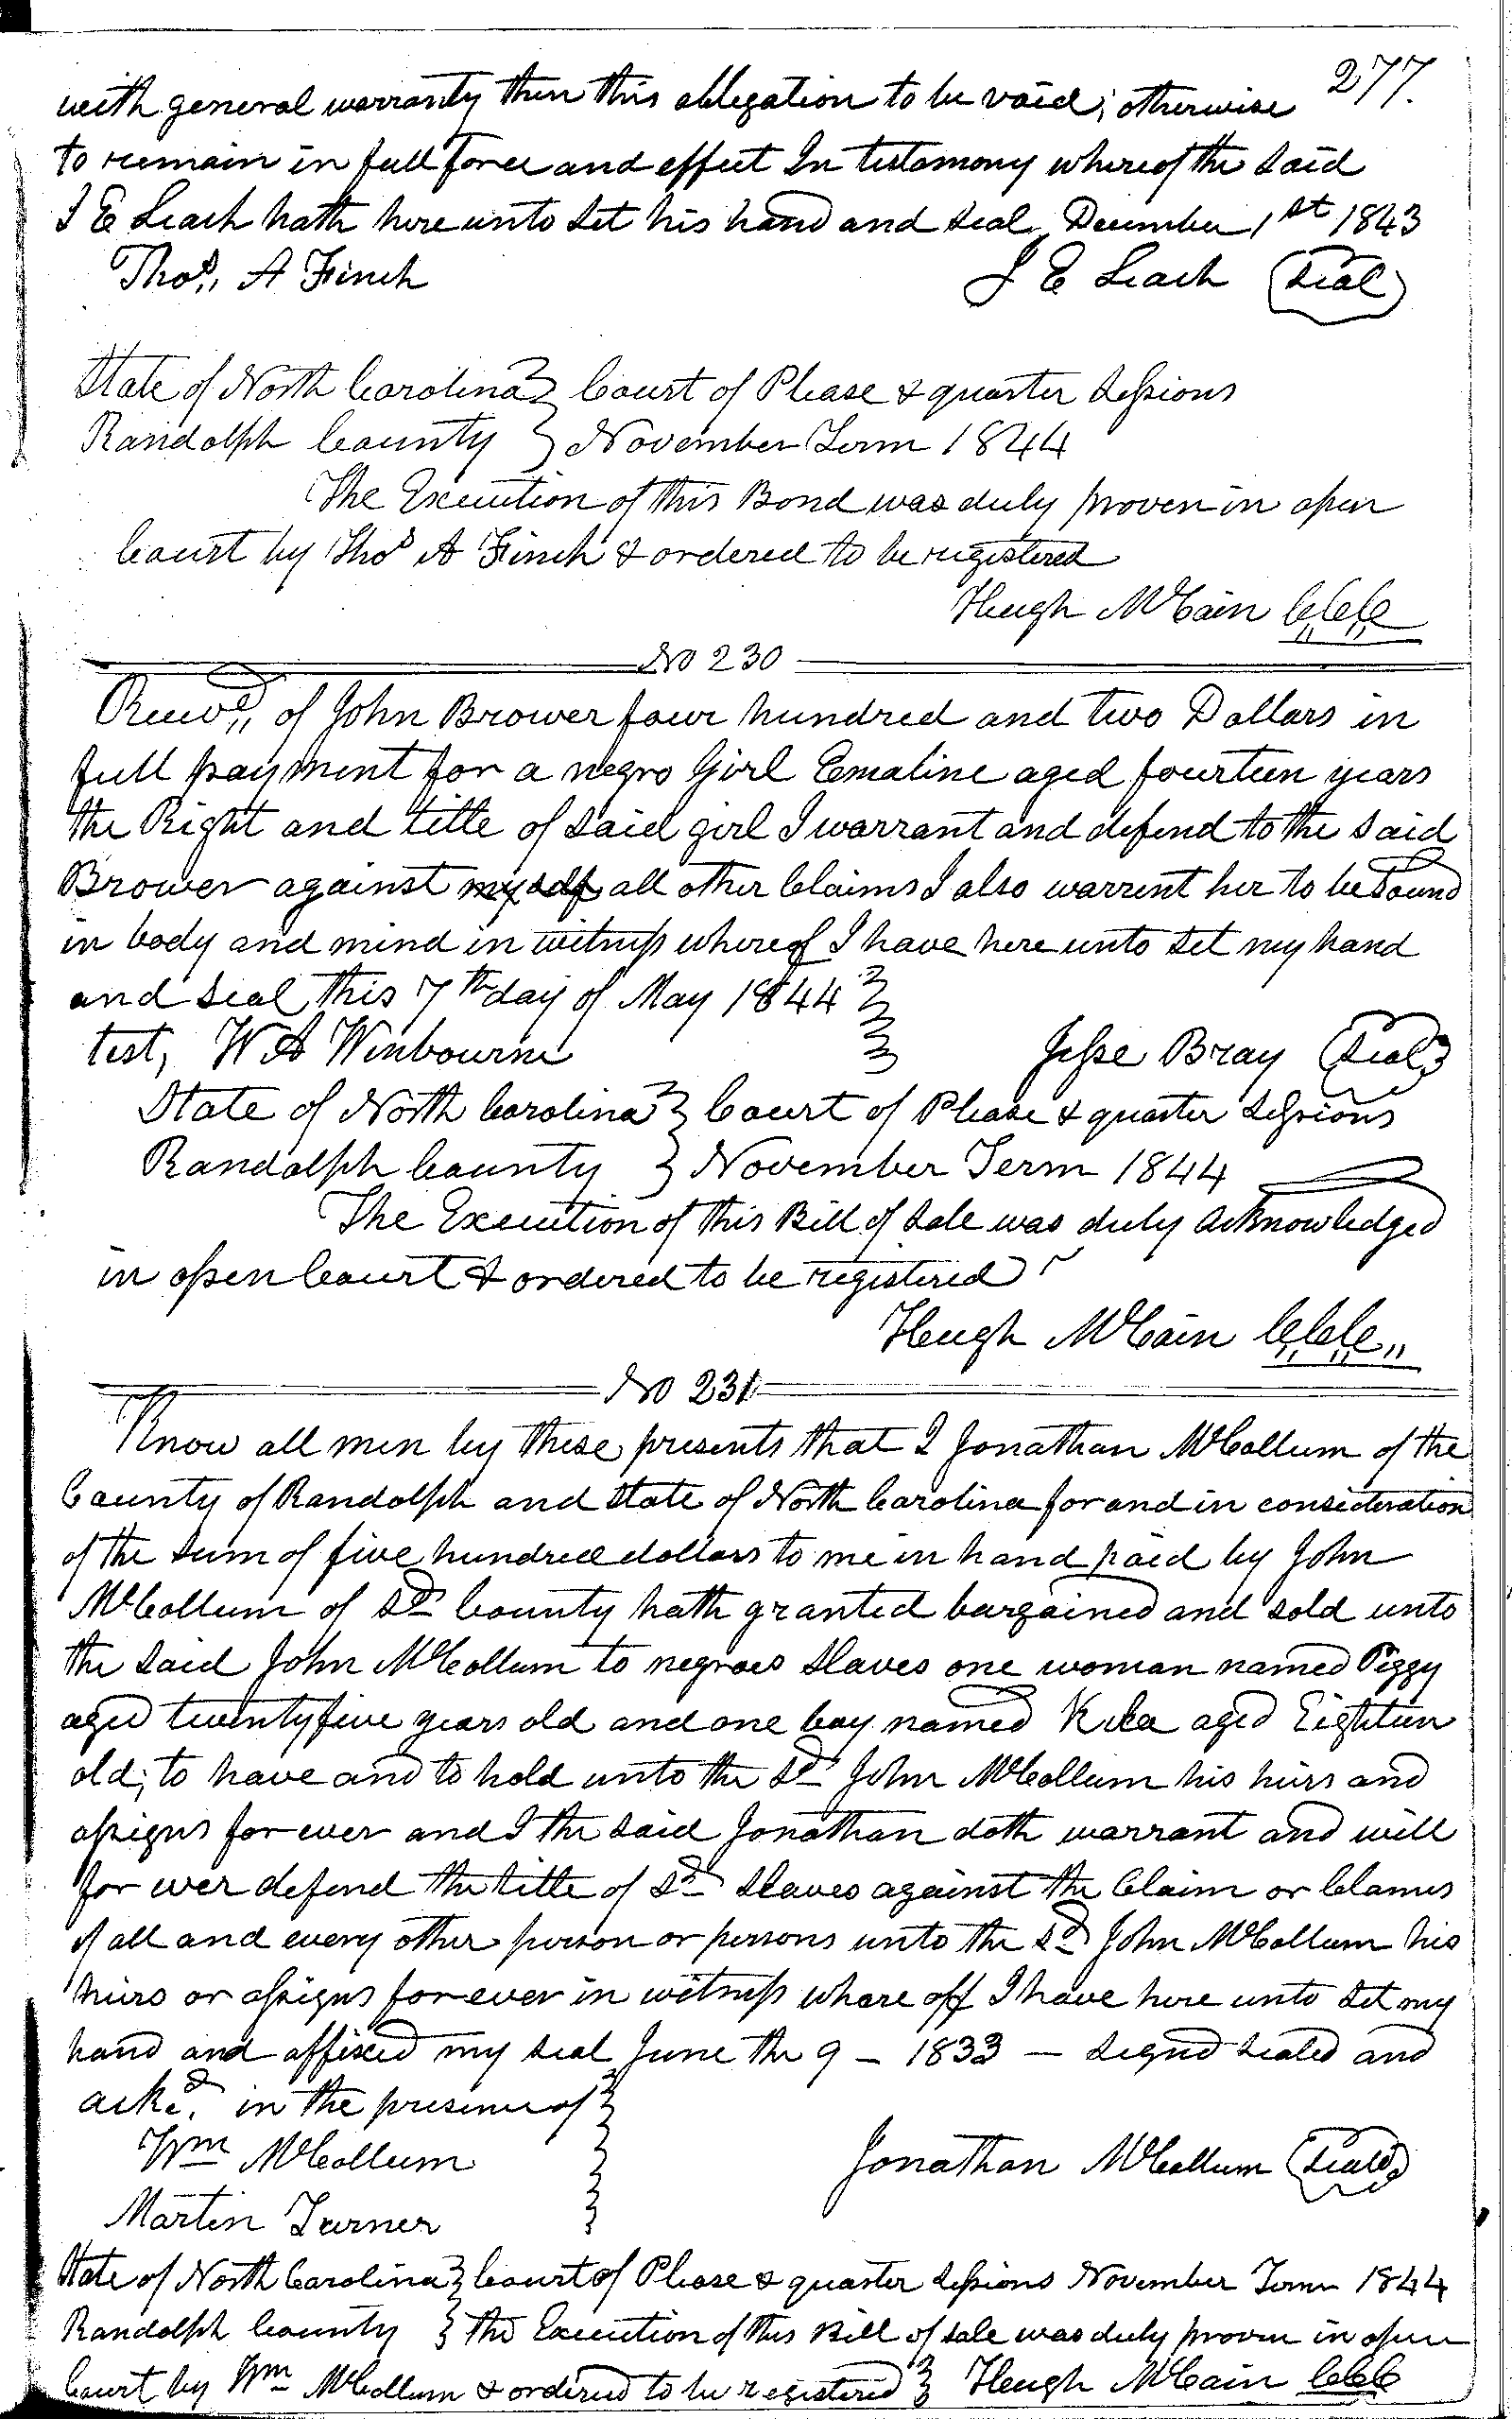 277.
with general warranty then this obligation to be void; otherwise
to remain in full force and effect In testamony whereof the said
J E Leach hath here unto set his hand and seal, December 1st 1843
Thos,, A Finch J E Leach (Seal)
State of North Carolina } Court of Please & quarter Sessions
Randolph County } November Term 1844
The Execution of this Bond was duly proven in open
Court by Thos A Finch & ordered to be registered
Hugh McCain C.C.C.
No 230
Recvd,, of John Brower four hundred and two Dollars in
full payment for a negro Girl Emaline aged fourteen years
the Right and title of said girl I warrant and defend to the said
Brower against myself all other Claims I also warrent her to be Sound
in body and mind in witness whereof I have here unto set my hand
and seal this 7th day of May 1844
test, W A Winbourne Jesse Bray (Seal)
State of North Carolina } Court of Please & quarter Sessions
Randolph County } November Term 1844
The Execution of this Bill of Sale was duly acknowledged
in open Court & ordered to be registered
Hugh McCain C.C.C.,,
No 231
Know all men by these presents that I Jonathan McCollum of the
County of Randolph and State of North Carolina for and in consideration
of the sum of five hundred dollars to me in hand paid by John
McCollum of sd County hath granted bargained and sold unto
the said John McCollum to negroes slaves one woman named Piggy
aged twenty five years old and one boy named aged Eighteen
old; to have and to hold unto the sd John McCollum his heirs and
assigns for ever and I the said Jonathan doth warrant and will
for ever defend the title of sd slaves against the Claim or Clames
of all and every other person or persons unto the sd John McCollum his
heirs or assigns for ever in witness where off I have here unto set my
hand and affixed my seal June the 9 – 1833 – signd sealed and
ackd. in the presence of
Wm McCollum Jonathan McCollum (Seal)
Martin Turner
State of North Carolina } Court of Please & quarter Sessions November Term 1844
Randolph County } the Execution of this Bill of sale was duly proven in open
Court by Wm McCollum & ordered to be registered } Hugh McCain CCC